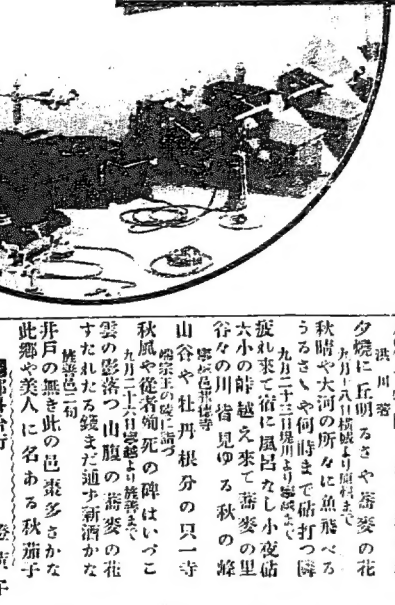 洪川着
夕燒に丘明るさや蕎麥の花
九月十八日横城より原村まで
秋晴や大河の所々に魚飛べる
うるさしや何時まで砧打つ隣
九月二十三日堤川より寧越まで
疲れ來て宿に風呂なし小夜砧
大小の峠越え來て蕎麥の里
谷々の川皆見ゆる秋の峰
寧越邑報德寺
山谷や牡丹根分の只一寺
端宗王の陵に詣づ
秋風や從者殉死の碑はいづこ
九月二十六日寧越より旌善まで
雲の影落つ山腹の蕎麥の花
すたれたる錢まだ通ず新酒かな
旌善邑二句
井戸の無き此の邑棗多さかな
此鄕や美人に名ある秋茄子